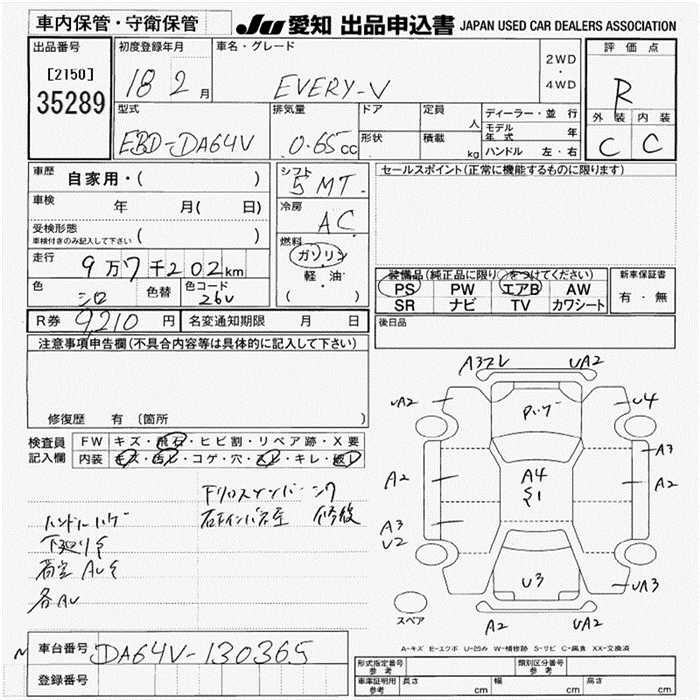 車内保管・守衛保管
JU 愛知 出品申込書 JAPAN USED CAR DEALERS ASSOCIATION
出品番号
[2150]
35289
初度登録年月
18 2 月
車名・グレード
EVERY-V
2WD
・
4WD
評価点
R
外装 内装
C C
型式
EBD-DA64V
排気量
0.65cc
ドア
形状
定員
人
積載
kg
ディーラー・並行
モデル年式 年
ハンドル 左・右
車歴
自家用・( )
車検
年 月( 日)
受検形態
車検付きのみ記入して下さい ( )
走行
9万7千202km
色
シロ
色替
色コード
26U
シフト
5MT
冷房
AC
燃料
ガソリン
軽・油
( )
セールスポイント(正常に機能するものに限ります)
装備品(純正品に限り○をつけてください)
PS PW エアB AW
SR ナビ TV カワシート
新車保証書
有・無
後日品
R券 9210 円
名変通知期限 月 日
注意事項申告欄(不具合内容等は具体的に記入して下さい)
修復歴 有(箇所 )
検査員記入欄
FW キズ・飛石・ヒビ割・リペア跡・X要
内装 キズ・汚レ・コゲ・穴・スレ・キレ・破レ
ハンドルハゲ
各AU
修復
A3 UA2
UA2 U4
ハゲ
A3
A2 A4 A2
S1
A3
U2
U3
UA3
A2 UA2
スペア
A-キズ E-エクボ U-凹み W-補修跡 S-サビ C-腐食 XX-交換済
車台番号 DA64V-130365
登録番号
形式指定番号 参考
類別区分番号 参考
車庫証明用 参考
長さ cm
幅 cm
高さ cm